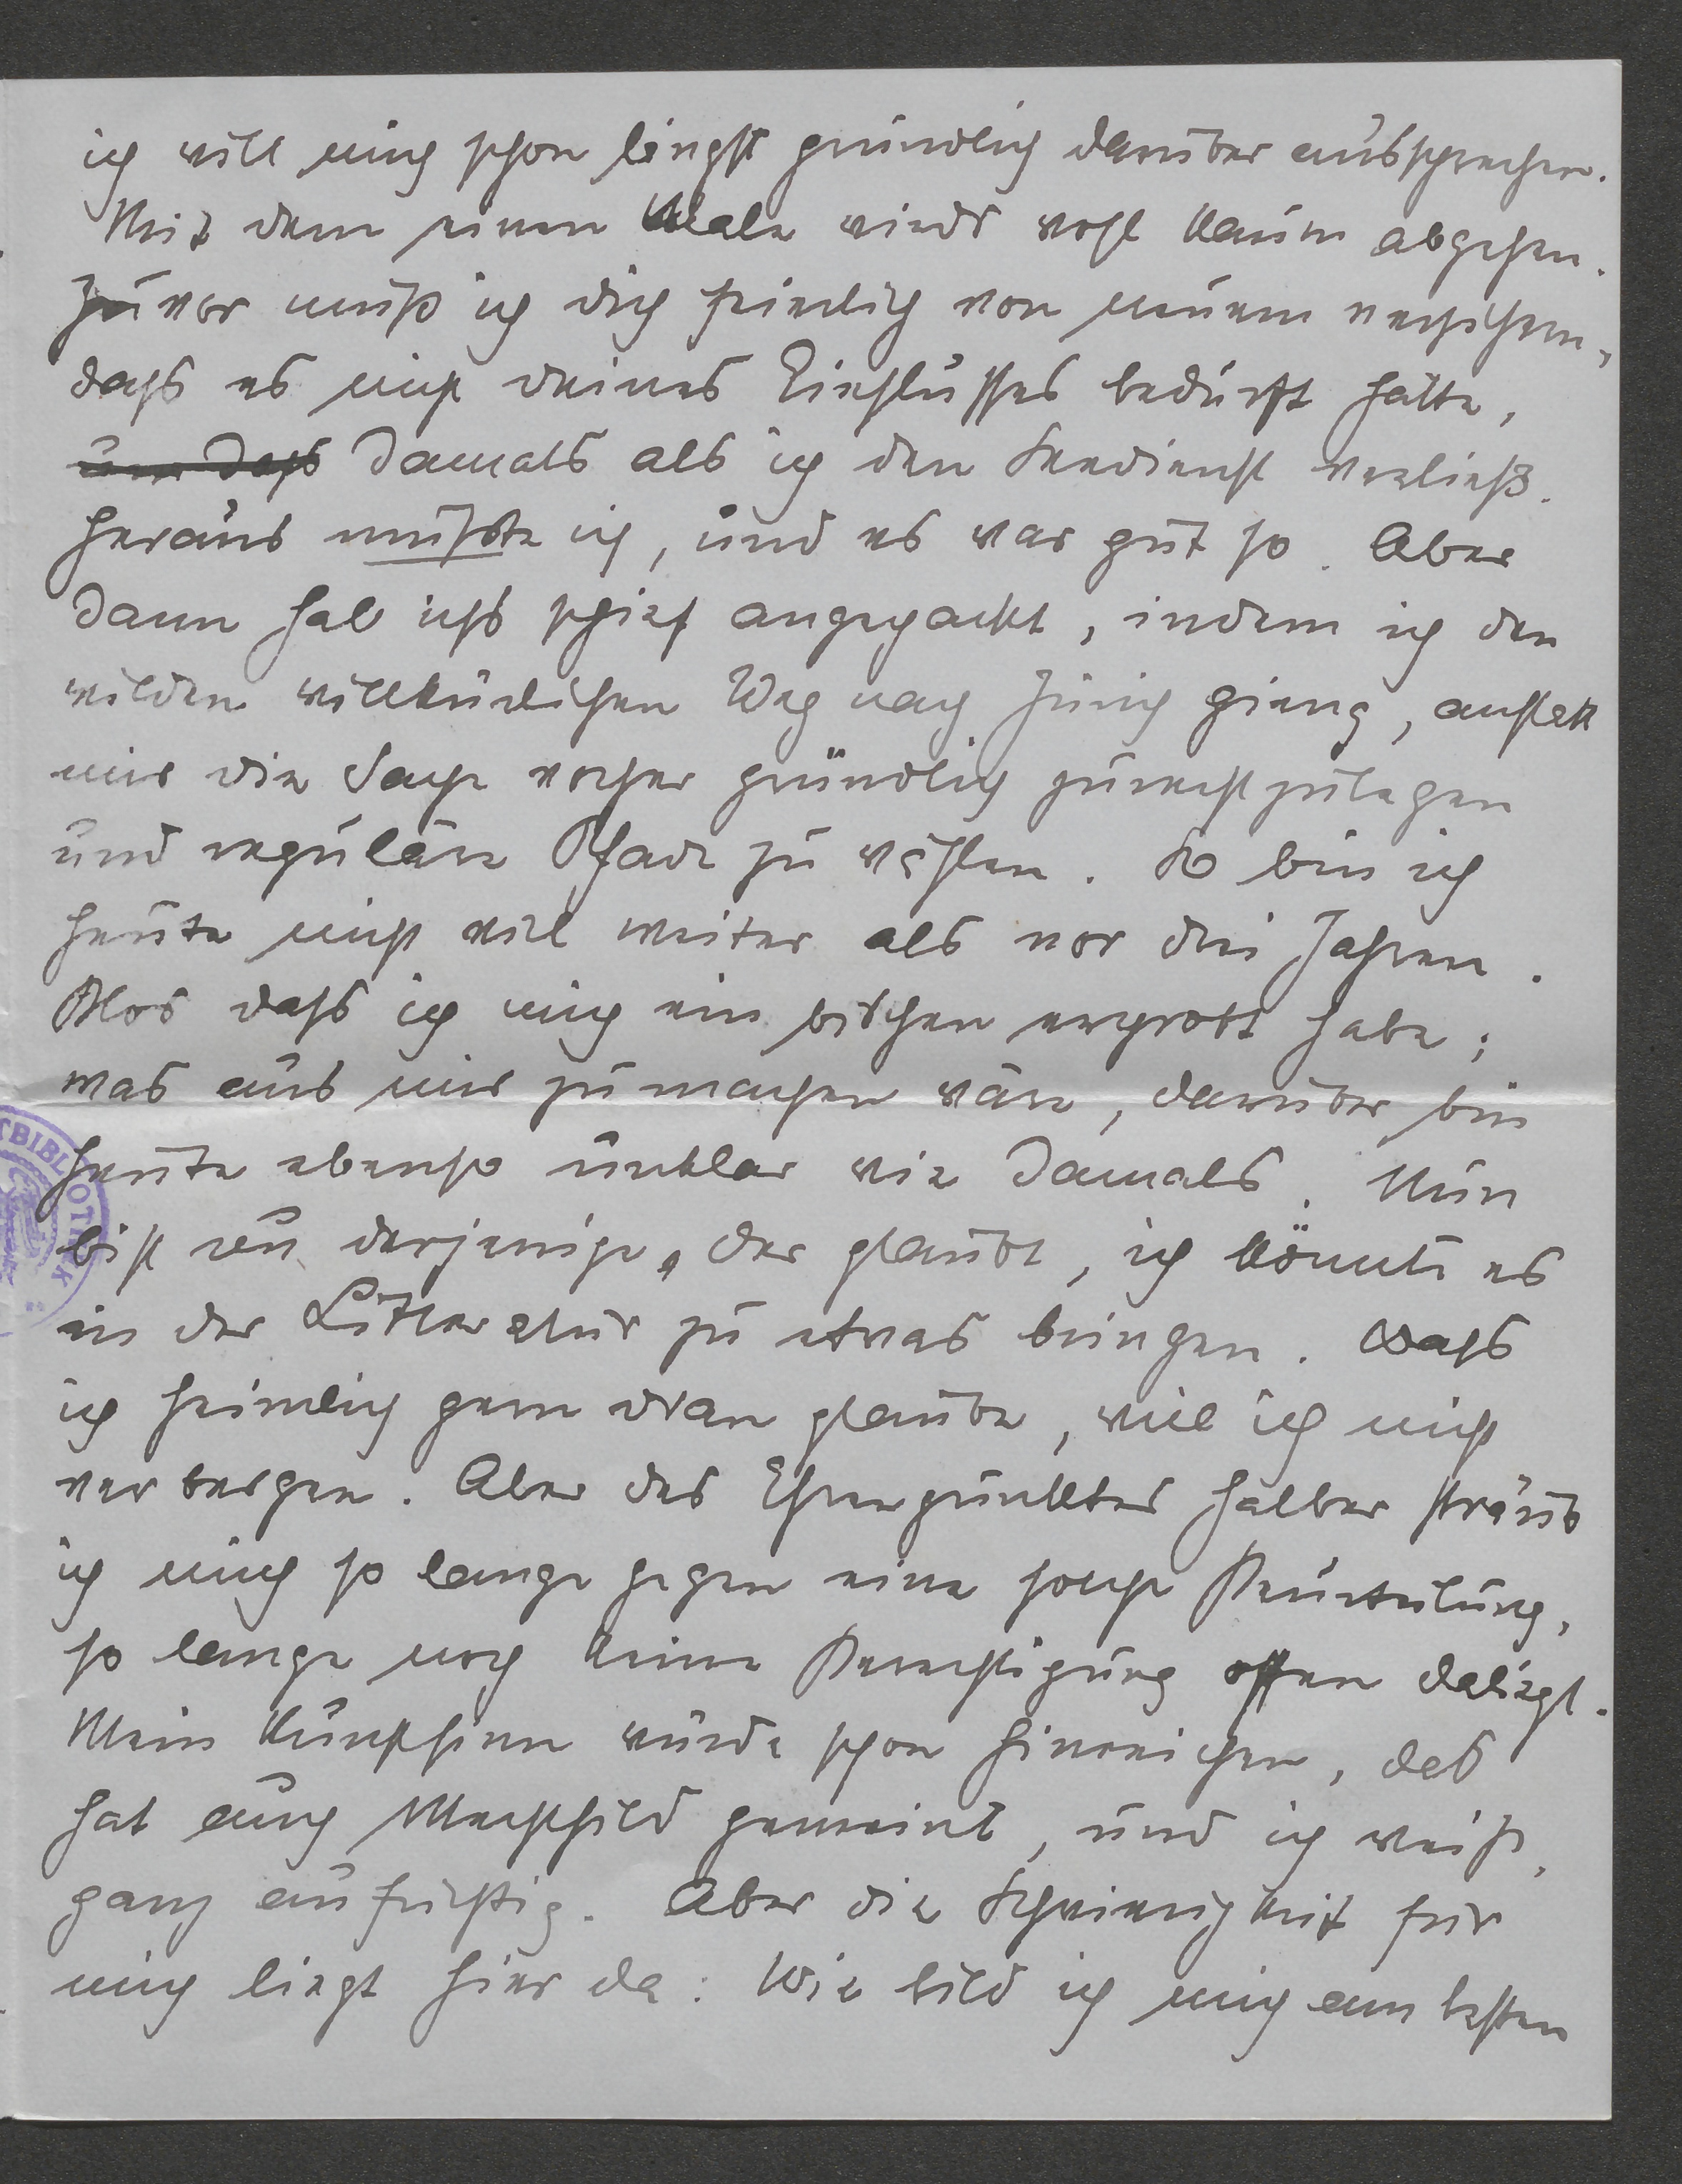 ich will mich schon längst gründlich darüber aussprechen.
Mit dem einen Male wirds wohl kaum abgehen.
Zuvor muß ich dich feierlich von neuem versichern,
dass es nicht deines Einflusses bedurft hätte,
um dass damals als ich den Seedienst verließ.
Heraus musste ich, und es war gut so. Aber
dann hab ichs schief angepackt, indem ich den
wilden willkürlichen Weg nach Zürich gieng, anstatt
mir die Sache vorher gründlich zurechtzulegen
und reguläre Pfade zu wählen. So bin ich
heute nicht viel weiter als vor drei Jahren.
Blos dass ich mich ein bischen erprobt habe;
was aus mir zu machen wäre, darüber bin
heute ebenso unklar wie damals. Nun
bist du derjenige, der glaubt, ich könnte es
in der Litteratur zu etwas bringen. Dass
ich heimlich gern dran glaube, will ich nicht
verbergen. Aber des Ehrenpunktes halber sträub
ich mich so lange gegen eine solche Beurteilung,
so lange noch keine Berechtigung offen daliegt.
Mein Kunstsinn würde schon hinreichen, das
hat auch Mechthild gemeint, und ich weiß,
ganz aufrichtig. Aber die Schwierigkeit für
mich liegt hier da: Wie bild ich mich am besten
TBIBLIOTHEK